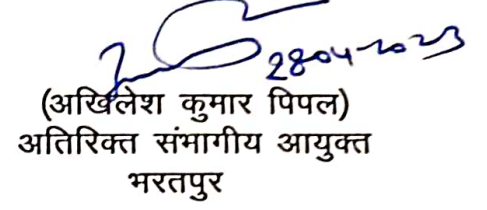 28-04-2023
(अखिलेश कुमार पिपल)
अतिरिक्त संभागीय आयुक्त
भरतपुर